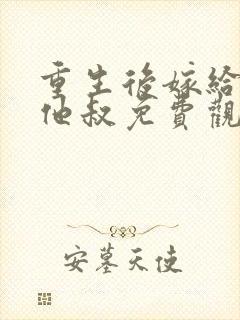 重生後嫁給
他叔免費觀
安墓天使